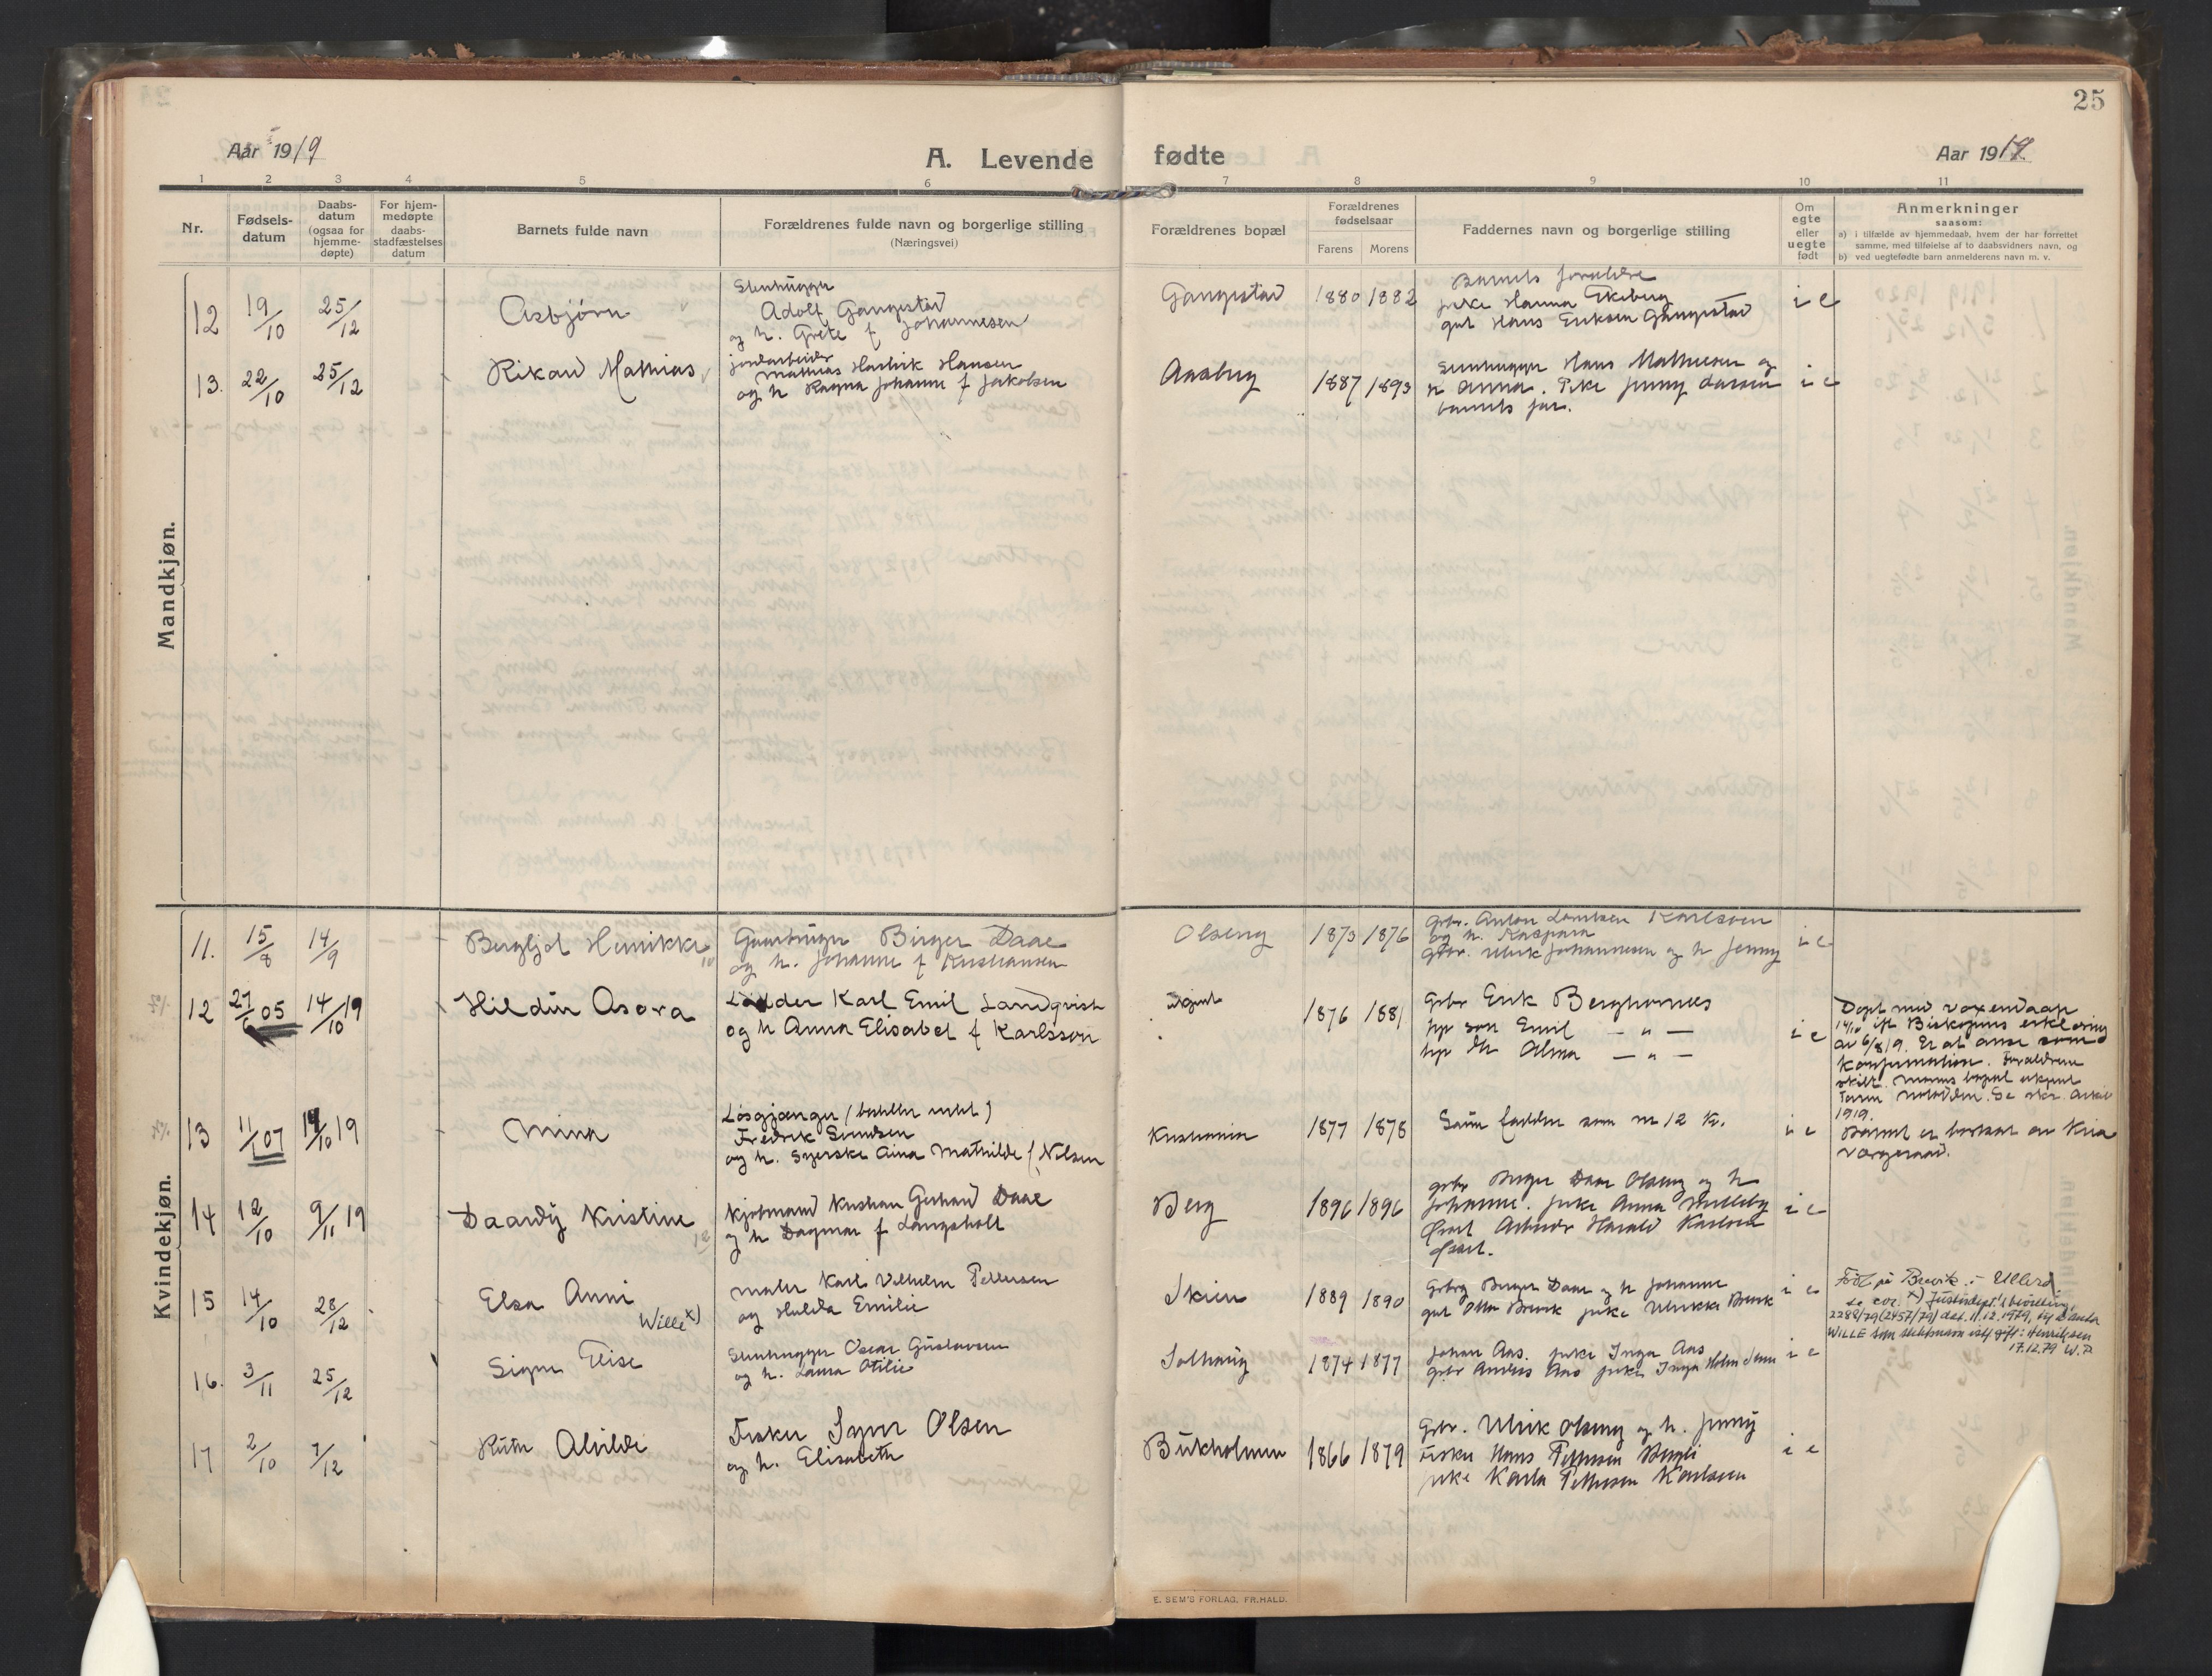 25
Aar 1919
A. Levende fødte
Aar 1919.
1 2 3 4 5 6 7 8 9 10 11
Nr.
Fødsels-
datum
Daabs-
datum
(ogsaa for
hjemme-
døpte)
For hjem-
medøpte
daabs-
stadfæstelses
datum
Barnets fulde navn
Forældrenes fulde navn og borgerlige stilling
(Næringsvei)
Forældrenes bopæl
Forældrenes
fødselsaar
Farens Morens
Faddernes navn og borgerlige stilling
Om
egte
eller
uegte
født
Anmerkninger
saasom:
a) i tilfælde av hjemmedaab, hvem der har forrettet
samme, med tilføielse af to daabsvidners navn, og
b) ved uegtefødte barn anmelderens navn m. v.
Mandkjøn.
12 19/10 25/12 Asbjørn
Stenhugger
Adolf Gangestad
og h. Grete f Johannesen
Gangestad 1880 1882
Barnets forældre
pike Hanna Ekeberg
gut Hans Eriksen Gangestad
i e
13. 22/10 25/12 Rikard Mathias
jordarbeider
Mathias Hartvik Hansen
og h Ragna Johanne f Jakobsen
Aasberg 1887 1893
Stenhugger Hans Mathiesen og
h Anna. Pike Jenny Larsen
barnets far.
i e
Kvindekjøn.
11. 15/8 14/9 Bergljot Henrikke
Gaardbruger Birger Daae
og h. Johanne f Kristiansen
Olseng 1873 1876
Grbr. Anton Lauritsen Karlsøen
og h. Kaspara
Grbr. Ulrik Johannesen og h Jenny
i e
12 27/6 05 14/10 19 Hildur Asora
Karl Emil Landqvist
og h Anna Elisabet f Karlsson
1876 1881
Grbr Erik Berghornes
hp søn Emil — " —
hp Alma — " —
i e
Døpt med voxendaap
14/10 ift Biskopens erklæring
av 6/8 19. Er at anse som
Konfirmation. Forældrene
skilt. Morens bopæl ukjent
Faren Notodden. Se skr. arkiv
1919.
13 11/1 07 14/10 19 Mina
Løsgjænger (bestiller intet)
Fredrik Svendsen
og h. Syerske Aina Mathilde f. Nilsen
Kristiania 1877 1878
Samme faddere som nr 12 K.
i e
Barnet er bortsat av Kria
Værgeraad.
14 12/10 9/11 19 Daardy Kristine
Kjøbmand Kristian Gerhard Daae
og h Dagmar f Langsholt
Berg 1896 1896
grbr Birger Daae Olseng og h
Johanne. pike Anna
Arbeider Harald Karlsen
i e
15 14/10 28/12 Elsa Anni
Wille x)
maler Karl Vilhelm Pettersen
og Hulda Emilie
Skien 1889 1890
Grbrg Birger Daae og h Johanne
gut Otto Brevik pike Ulrikke Brevik
i e
Født på Brevik i Ullerø
se cor. x) Justisdept.'s bevilling
2288/79 (2457/79) dat. 11.12.1979,
WILLE som slektsnavn istf gift: Henriksen
17.12.79 W.P.
16. 3/11 25/12 Signe Elise
Stenhugger Oscar Gustavsen
og h. Laura Otilie
Solhaug 1874 1877
Johan Aas. pike Inga Aas
grbr Anders Aas pike Inga Holm
i e
17 2/10 7/12 Ruth Alvilde
Fisker Syver Olsen
og h. Elisabeth
Bukholmen 1866 1879
Grbr. Ulrik Olseng og h. Jenny
Fisker Hans Pettersen
pike Karla Pettersen Karlsøen
i e
E. SEM'S FORLAG, FR.HALD.